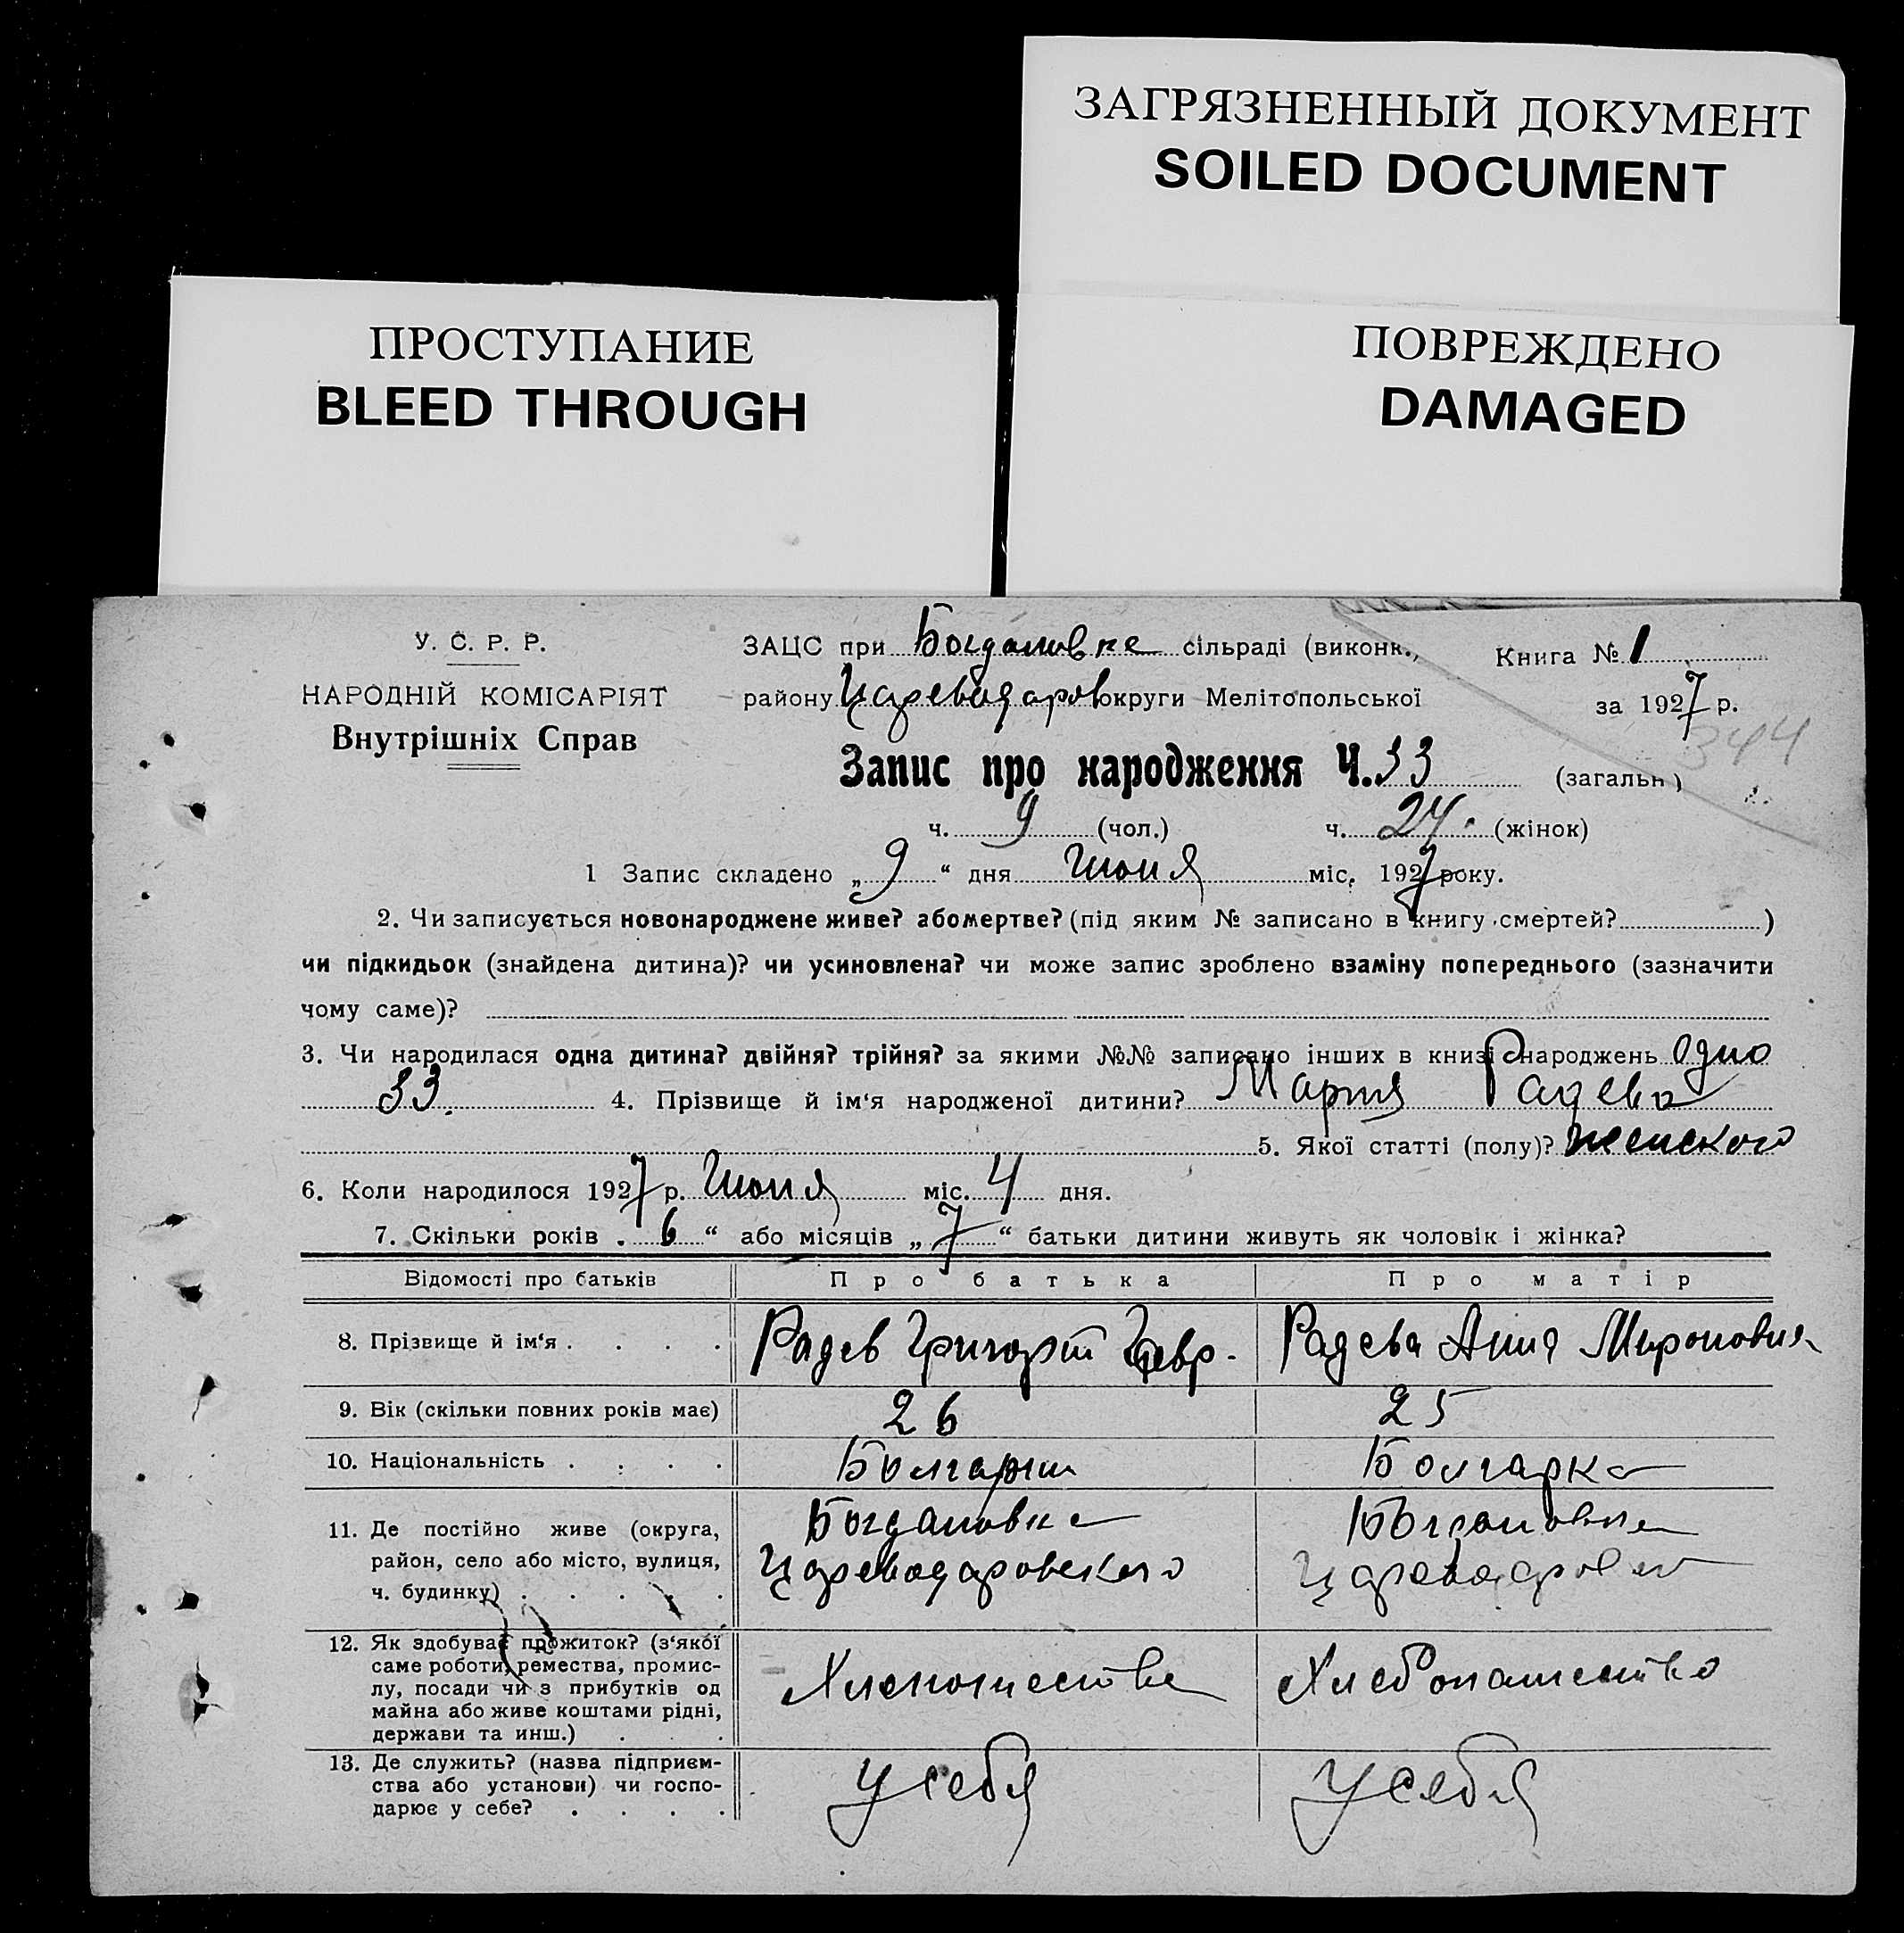 ЗАГРЯЗНЕННЫЙ ДОКУМЕНТ
SOILED DOCUMENT
ПРОСТУПАНИЕ
BLEED THROUGH
ПОВРЕЖДЕНО
DAMAGED
У. С. Р. Р.
НАРОДНІЙ КОМІСАРІЯТ
Внутрішніх Справ
ЗАЦС при Богдановке сільраді (виконк.,
району Царевода­ров округи Мелітопольської
Книга № 1
за 1927 р.
344
Запис про народження Ч. 33 (загальн)
ч. 9 (чол.) ч. 24. (жінок)
1 Запис складено „9“ дня Июня міс. 1927 року.
2. Чи записується новонароджене живе? або мертве? (під яким № записано в книгу смертей? )
чи підкидьок (знайдена дитина)? чи усиновлена? чи може запис зроблено взаміну попереднього (зазначити
чому саме)?
3. Чи народилася одна дитина? двійня? трійня? за якими №№ записано інших в книзі народжень Одно
33. 4. Прізвище й ім‘я народженої дитини? Мария Радева
5. Якої статті (полу)? женского
6. Коли народилося 1927 р. Июня міс. 4 дня.
7. Скільки років „6“ або місяців „7“ батьки дитини живуть як чоловік і жінка?
Відомості про батьків Про батька Про матір
8. Прізвище й ім‘я . . . . Радев Григорий Гавр. Радева Анна Мироновна
9. Вік (скільки повних років має) 26 25
10. Національність . . . . Болгарин Болгарка
11. Де постійно живе (округа,
район, село або місто, вулиця,
ч. будинку) . . . . .
Богдановка
Царевода­ровского
Богдановка
12. Як здобуває прожиток? (з‘якої
саме роботи, ремества, промис-
лу, посади чи з прибутків од
майна або живе коштами рідні,
держави та инш.) . . .
Хлебопашество
13. Де служить? (назва підприєм-
ства або установи) чи госпо-
дарює у себе? . . . .
У себя У себя